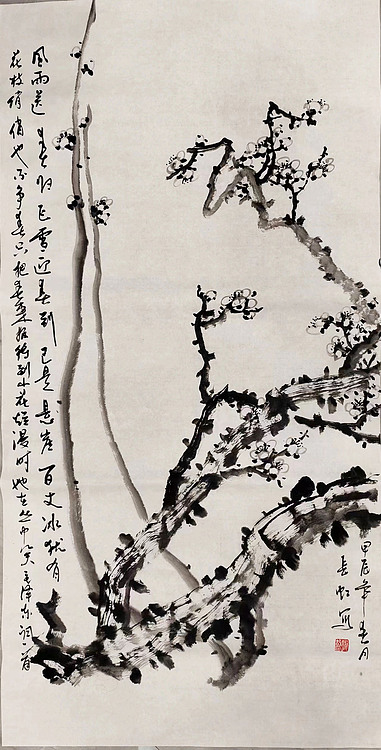 風雨送春归飞雪迎春到已是悬崖百丈冰犹有
花枝俏俏也不争春只把春来报待到山花烂漫时她在丛中笑毛泽东词一首
甲辰年春月
长虹写